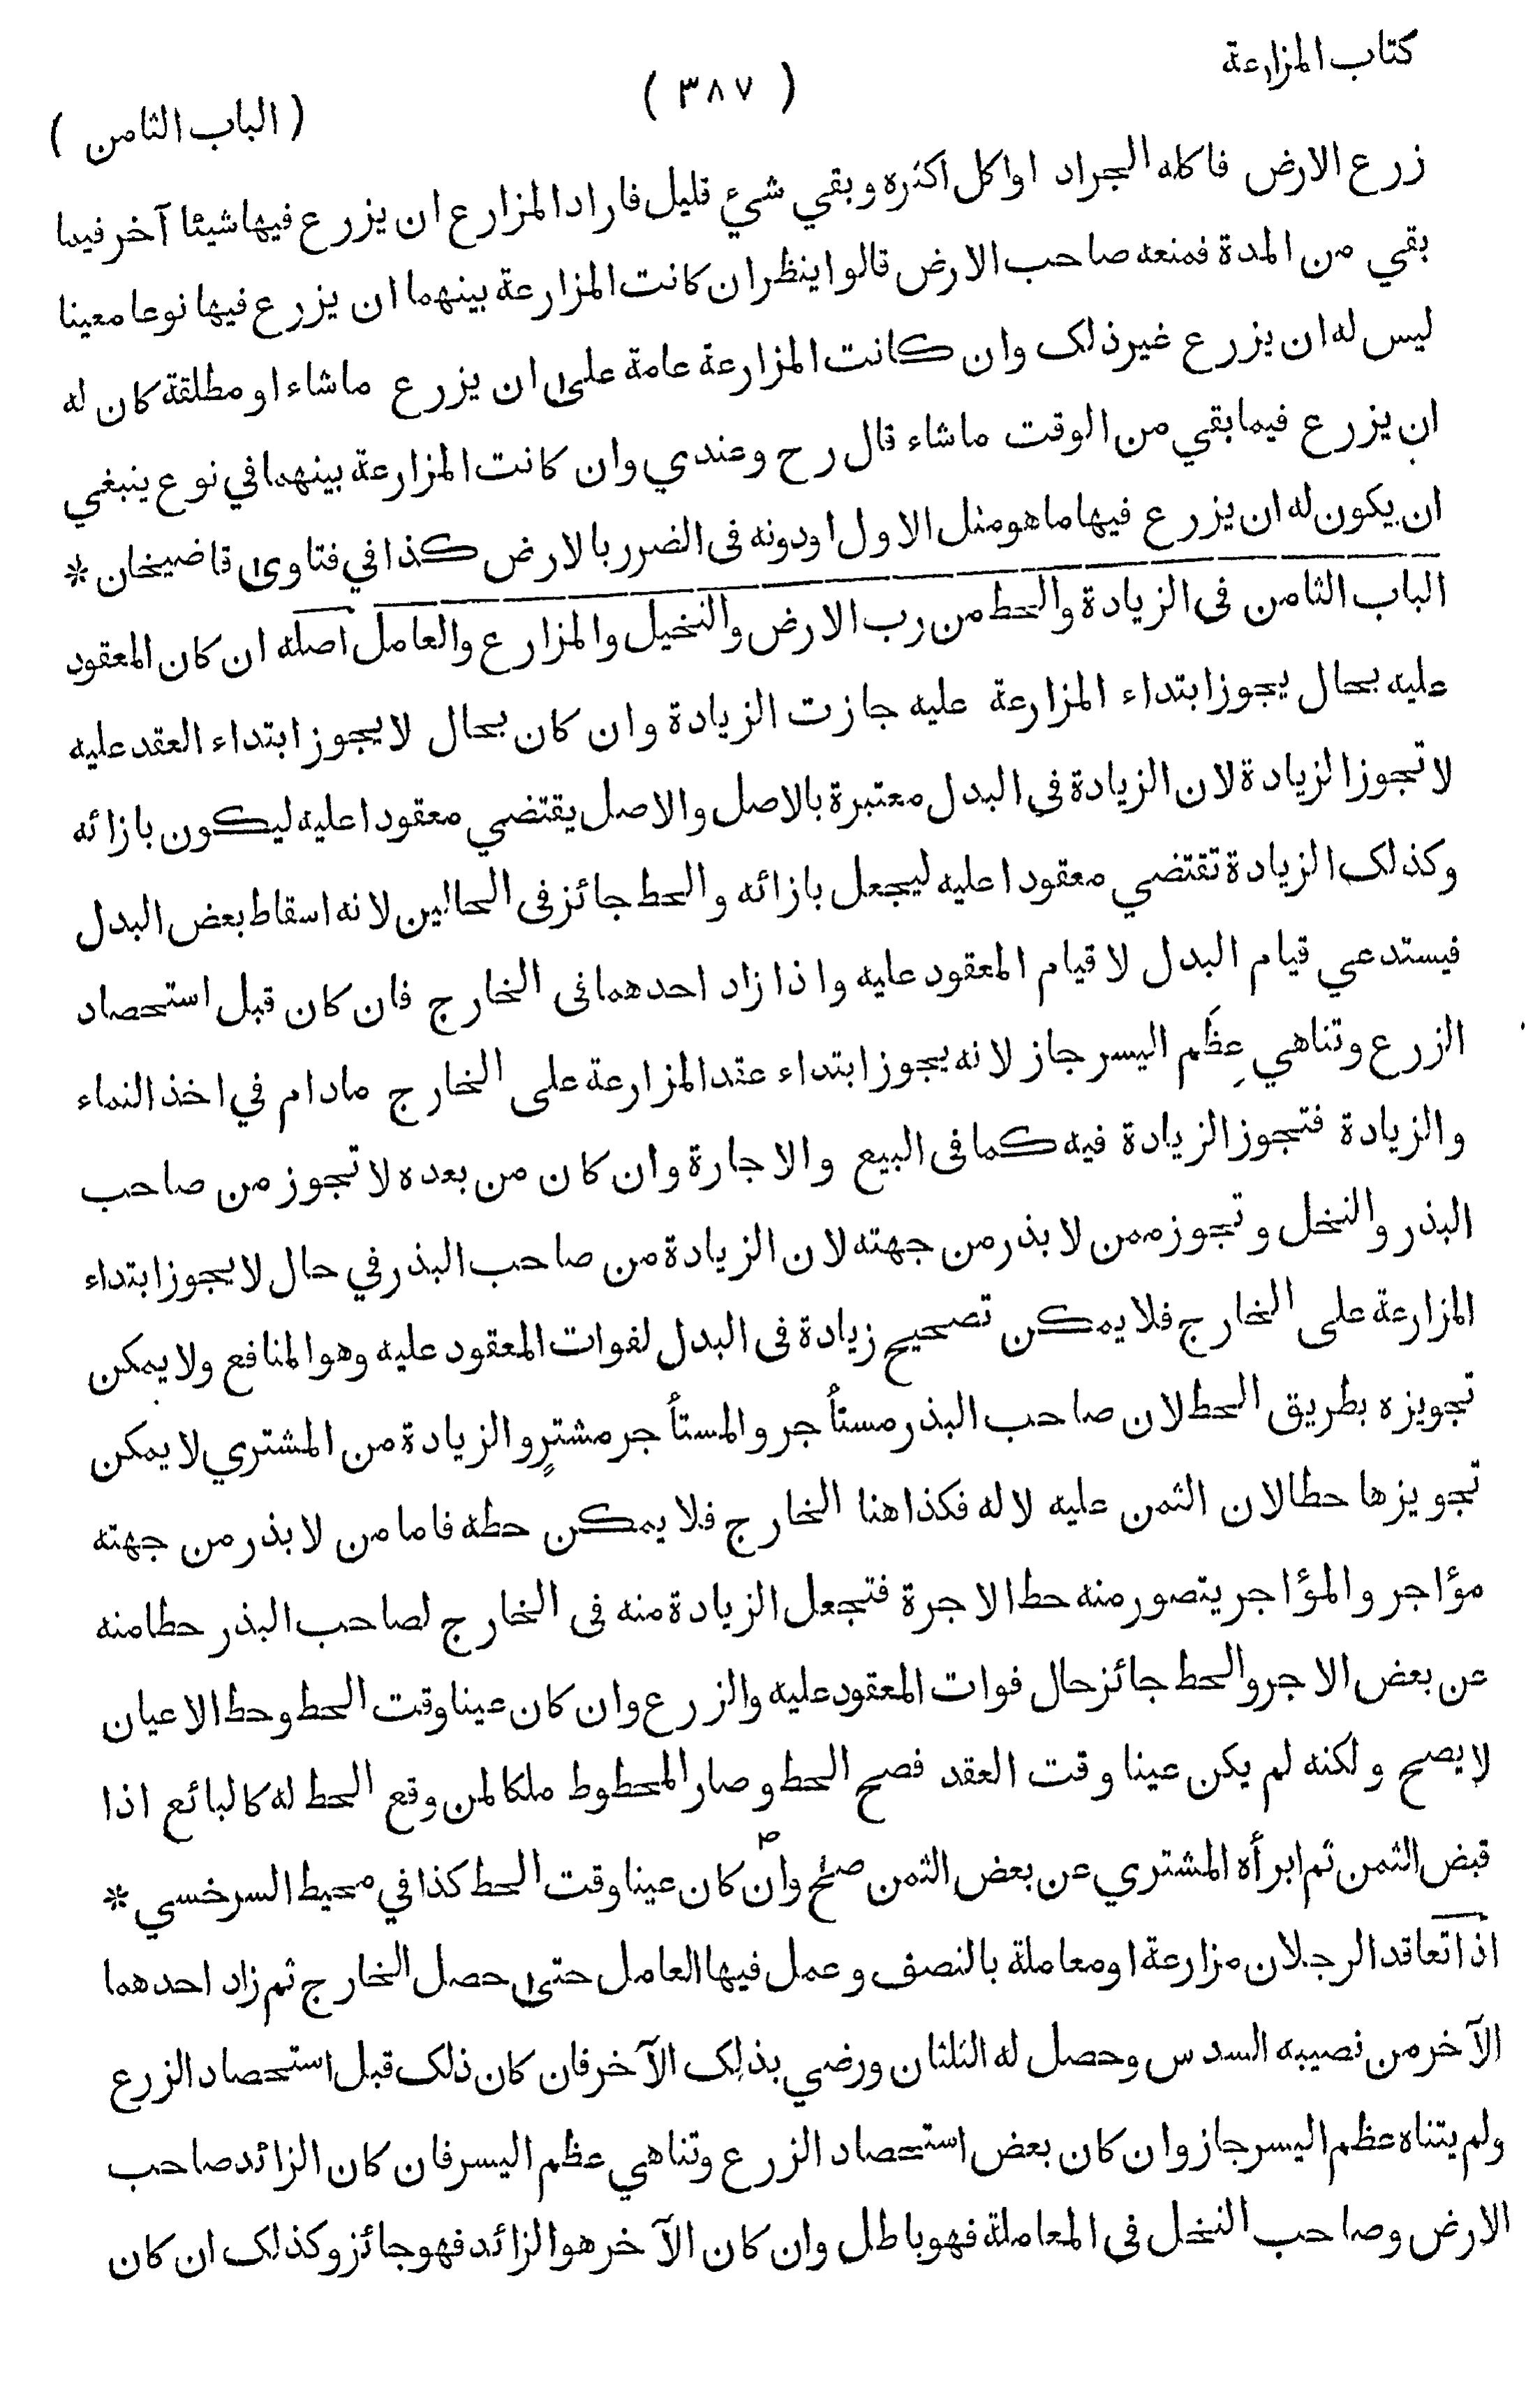 كتاب المزارعة
( ٣٨٧ )
( الباب الثامن )
زرع الارض فاكله الجراد اواكل اكثره وبقي شيء قليل فاراد المزارع ان يزرع فيها شيئا آخر فيما
بقي من المدة فمنعه صاحب الارض قالوا ينظر ان كانت المزارعة بينهما ان يزرع فيها نوعا معينا
ليس له ان يزرع غير ذلک وان كانت المزارعة عامة علىٰ ان يزرع ماشاء او مطلقة كان له
ان يزرع فيما بقي من الوقت ماشاء قال رح وعندي وان كانت المزارعة بينهما في نوع ينبغي
ان يكون له ان يزرع فيها ما هو مثل الاول او دونه فى الضرر بالارض كذا في فتاوىٰ قاضيخان *
الباب الثامن فى الزيادة والحط من رب الارض والنخيل والمزارع والعامل اصله ان كان المعقود
عليه بحال يجوز ابتداء المزارعة عليه جازت الزيادة وان كان بحال لا يجوز ابتداء العقد عليه
لا تجوز الزيادة لان الزيادة في البدل معتبرة بالاصل والاصل يقتضي معقودا عليه ليكون بازائه
وكذلک الزيادة تقتضي معقودا عليه ليجعل بازائه والحط جائز فى الحالين لانه اسقاط بعض البدل
فيستدعي قيام البدل لا قيام المعقود عليه واذا زاد احدهما فى الخارج فان كان قبل استحصاد
الزرع وتناهي عِظَم اليسر جاز لانه يجوز ابتداء عقد المزارعة على الخارج مادام في اخذ النماء
والزيادة فتجوز الزيادة فيه كما فى البيع والاجارة وان كان من بعده لا تجوز من صاحب
البذر والنخل وتجوز ممن لا بذر من جهته لان الزيادة من صاحب البذر في حال لا يجوز ابتداء
المزارعة على الخارج فلا يمكن تصحيح زيادة فى البدل لفوات المعقود عليه وهو المنافع ولا يمكن
تجويزه بطريق الحط لان صاحب البذر مستأجر والمستأجر مشترٍ والزيادة من المشتري لا يمكن
تجويزها حطا لان الثمن عليه لا له فكذا هنا الخارج فلا يمكن حطه فاما من لا بذر من جهته
مؤاجر والمؤاجر يتصور منه حط الاجرة فتجعل الزيادة منه فى الخارج لصاحب البذر حطا منه
عن بعض الاجر والحط جائز حال فوات المعقود عليه والزرع وان كان عينا وقت الحط وحط الاعيان
لا يصح ولكنه لم يكن عينا وقت العقد فصح الحط وصار المحطوط ملكا لمن وقع الحط له كالبائع اذا
قبض الثمن ثم ابرأه المشتري عن بعض الثمن صلح وان كان عينا وقت الحط كذا في محيط السرخسي *
اذا تعاقد الرجلان مزارعة او معاملة بالنصف وعمل فيها العامل حتىٰ حصل الخارج ثم زاد احدهما
الآخر من نصيبه السدس وحصل له الثلثان ورضي بذلِک الآخر فان كان ذلک قبل استحصاد الزرع
ولم يتناه عظم اليسر جاز وان كان بعض استحصاد الزرع وتناهي عظم اليسر فان كان الزائد صاحب
الارض وصاحب النخل فى المعاملة فهو باطل وان كان الآخر هو الزائد فهو جائز وكذلک ان كان